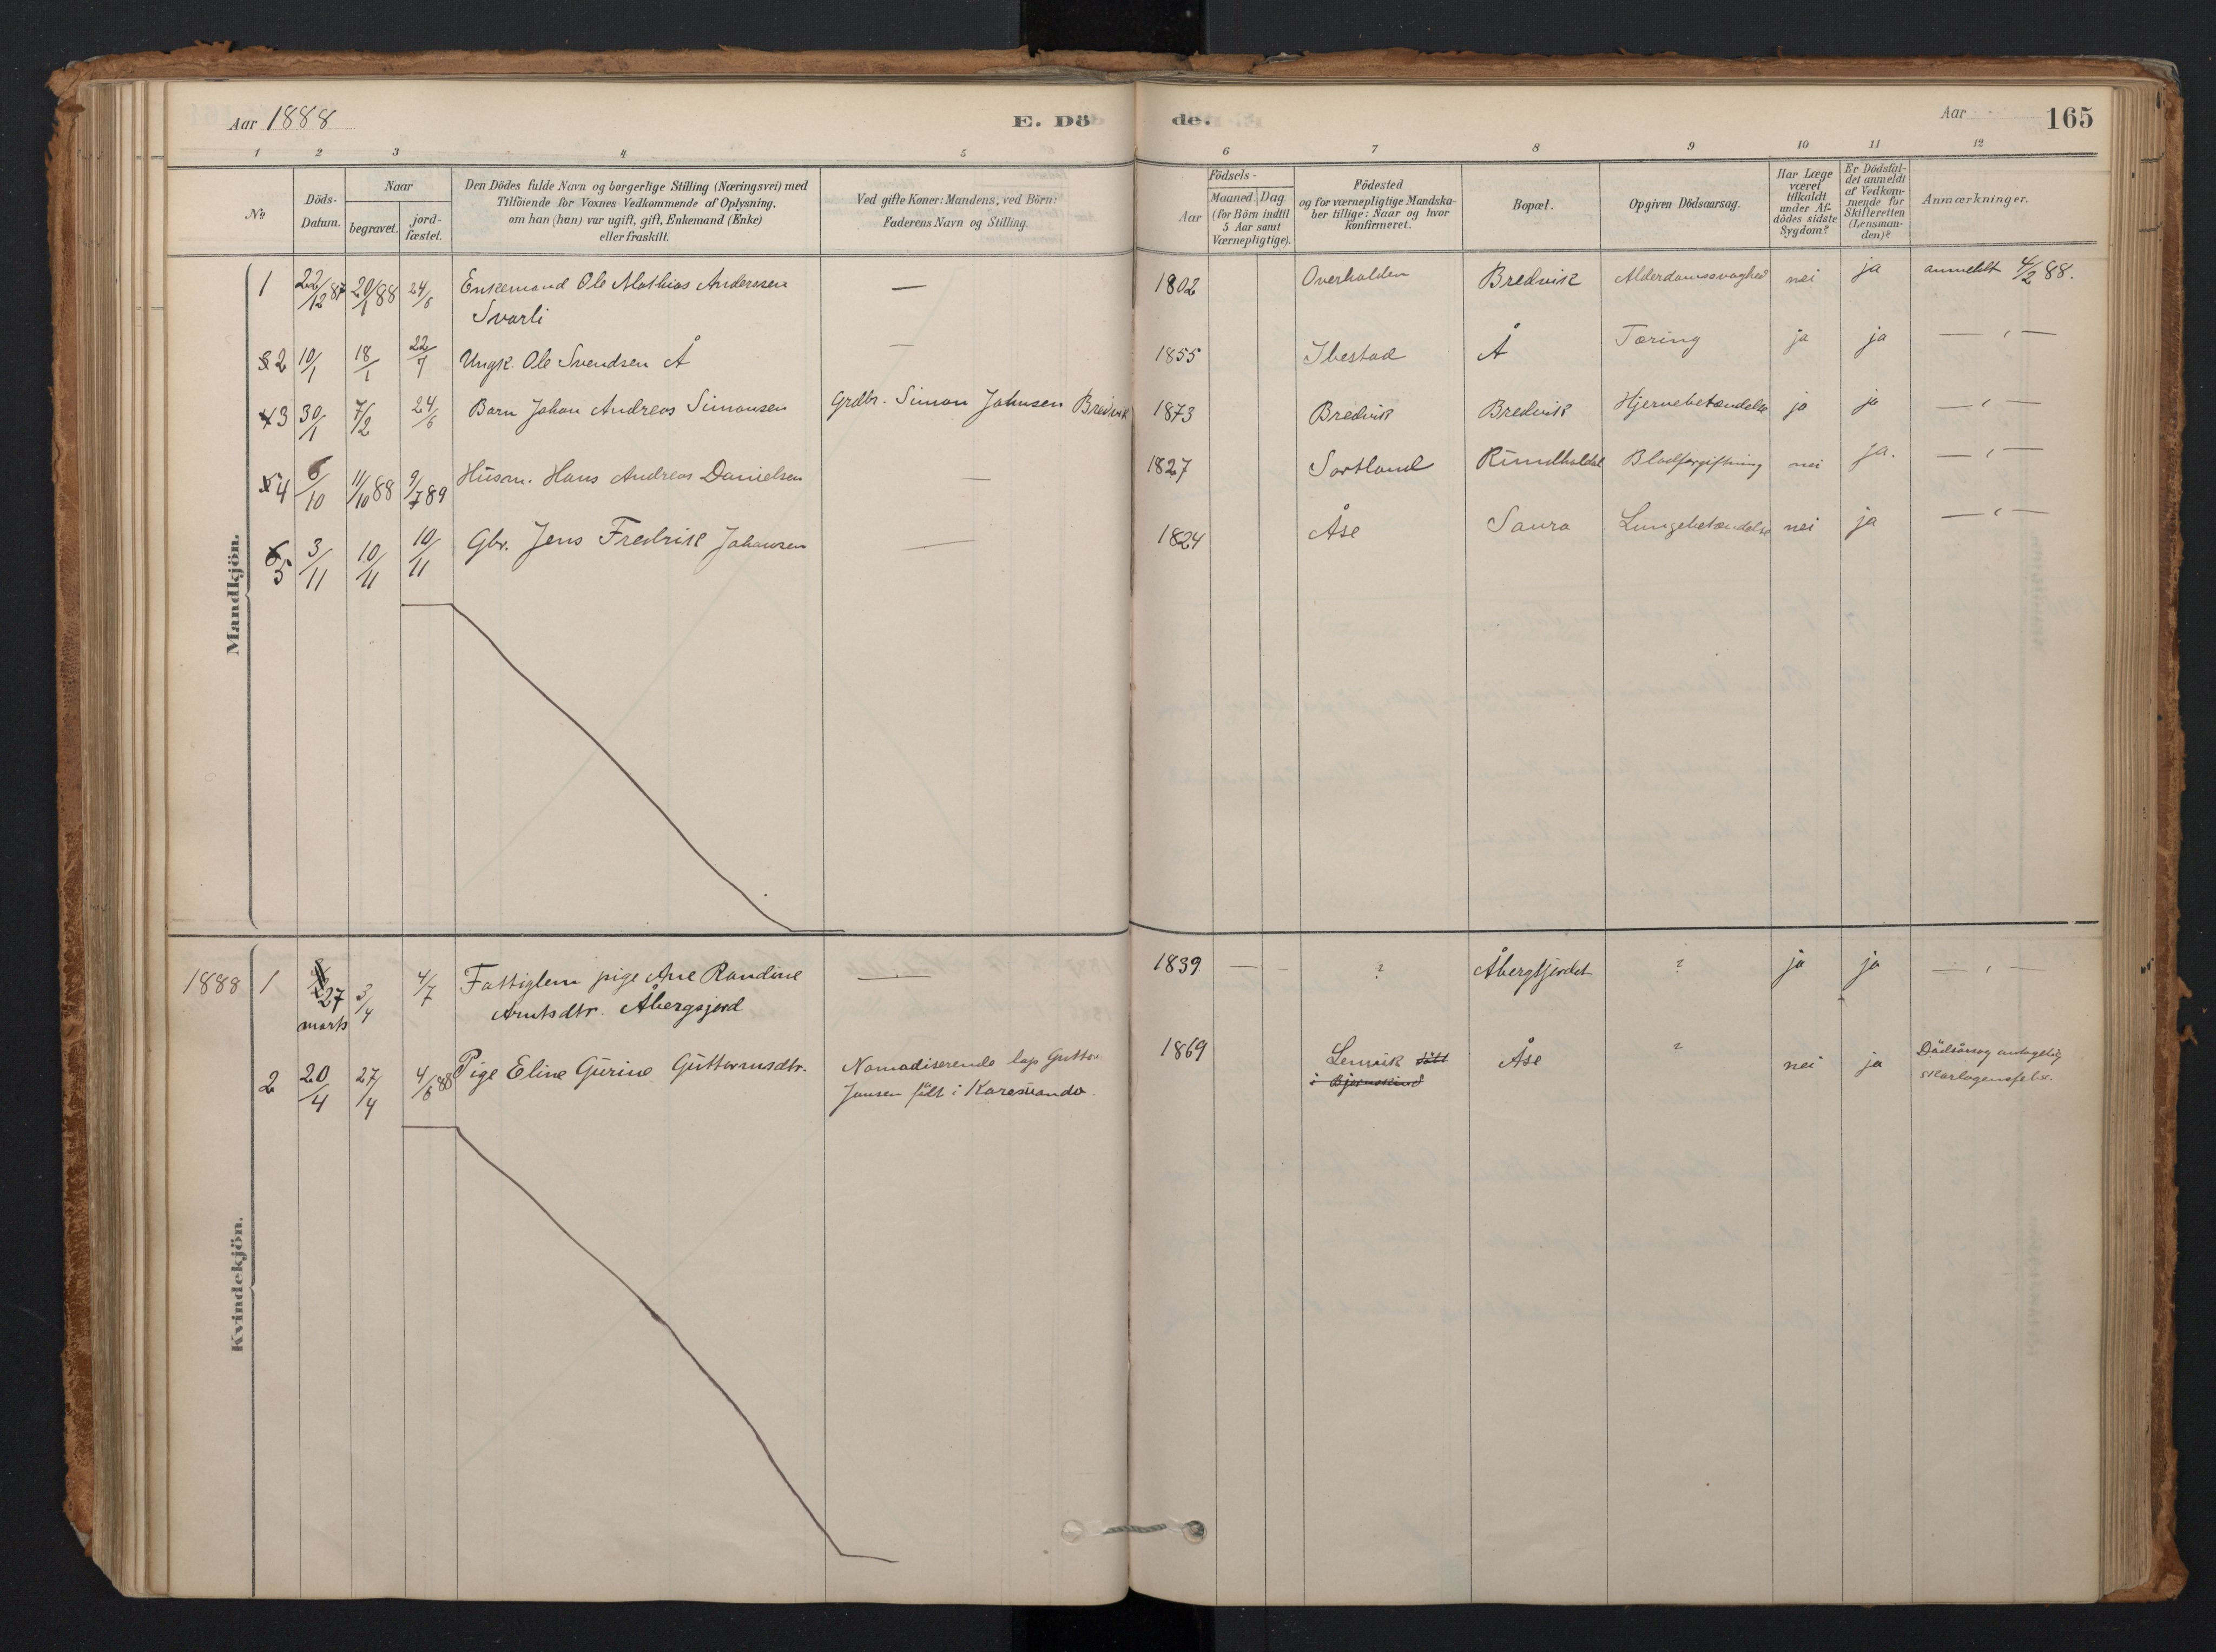 Aar 1888
E. Döde.
Aar 165
1 2 3 4 5 6 7 8 9 10 11 12
No
Döds-Datum.
Naar
begravet.
jord-fæstet.
Den Dödes fulde Navn og borgerlige Stilling (Næringsvei) med
Tilföiende for Voxnes Vedkommende af Oplysning,
om han (hun) var ugift, gift, Enkemand (Enke)
eller fraskilt.
Ved gifte Koner: Mandens, ved Börn:
Faderens Navn og Stilling.
Födsels-
Aar
Maaned. Dag.
(for Börn indtil
5 Aar samt
Værnepligtige).
Födested
og for værnepligtige Mandska-
ber tillige: Naar og hvor
konfirmeret.
Bopæl.
Opgiven Dödsaarsag.
Har Læge
været
tilkaldt
under Af-
dödes sidste
Sygdom?
Er Dödsfal-
det anmeldt
af Vedkom-
mende for
Skifteretten
(Lensman-
den)?
Anmærkninger.
Mandkjön.
1 22/12 87 20/1 88 24/6 Enkemand Ole Mathias Anderssen — 1802 Overhalden Bredvik Alderdomssvaghed nei ja anmeldt 4/2 88.
Svarli
2 10/1 18/1 22/7 Ungk. Ole Svendsen Å — 1855 Ibestad Å Tæring ja ja — " —
3 30/1 7/2 24/6 Barn Johan Andreas Simonsen Grdbr. Simon Johnsen Bredvik 1873 Bredvik Bredvik Hjernebetændelse ja ja — " —
4 6/10 11/10 88 9/7 89 Husm. Hans Andreas Danielsen — 1827 Sortland Rundholdt Blodforgiftning nei ja. — " —
5 3/11 10/11 10/11 Gbr. Jens Fredrik Johansen — 1824 Åse Saura Lungebetændelse nei ja — " —
Kvindekjön.
1888 1 27 marts 3/4 4/7 Fattiglem pige Ane Randine — 1839 — - ? Åbergsjordet ? ja ja — " —
Arntsdtr. Åbergsjord
2 20/4 27/4 4/6 88 Pige Eline Gurine Guttormsdtr. Nomadiserende lap Guttor 1869 Lenvik født Åse ? nei ja Dødsårsag antagelig
Jonsen født i Karesuando. i Bjarnskind skarlagensfeber.